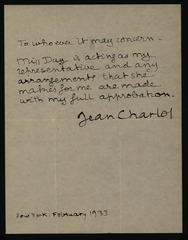 To whoever it may concern -
Miss Day is acting as my
representative and any
arrangements that she
makes for me are made
with my full approbation.
Jean Charlot
New York. February 1933